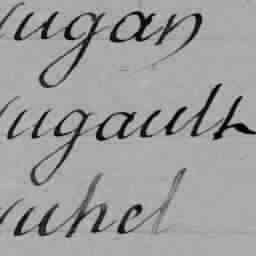 ugan
ugault
uhel